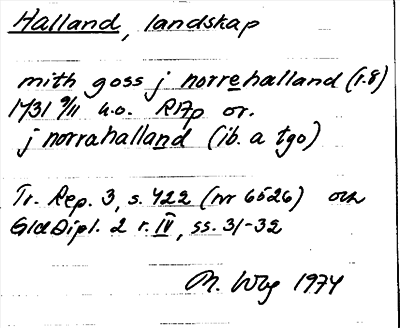 Halland, landskap
mith goss j norrehalland (r. 8)
1431 9/11 u.o. RAp or.
j norrahalland (ib. a tgo)
Tr. Rep. 3, s. 422 (nr 6526) och
GldDipl. 2 r. IV, ss. 31-32
M. Wbg 1974